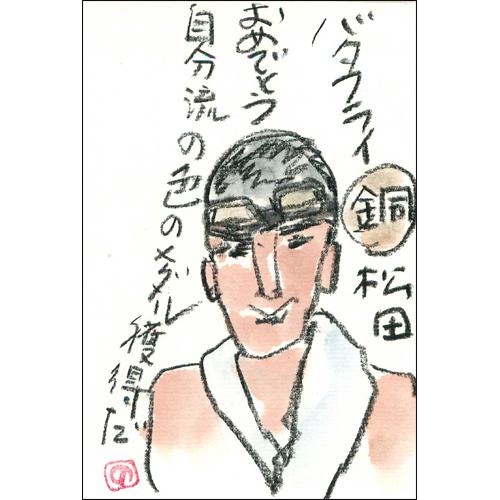 バタフライ
銅
松田
おめでとう
自分流の色のメダル獲得だ
の